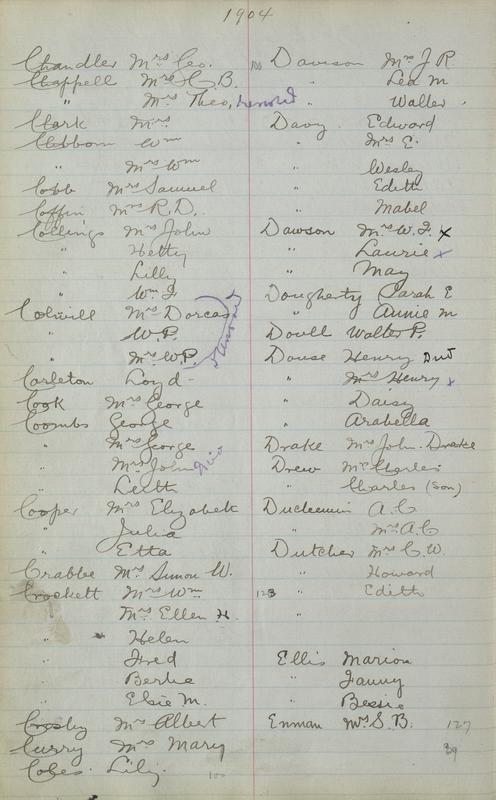 1904
Chandler Mrs Geo.
Chappell Mrs H. B.
" Mrs Theo, removed
Clark Mrs
Clibborn Wm
" Mrs Wm
Cobb Mrs Samuel
Coffin Mrs R. D.
Collings Mrs John
" Hetty
" Lilly
" Wm J
Colwill Mrs Dorcas
" W. P.
" Mrs W. P. removed
Carleton Loyd
Cook Mrs George
Coombs George
" Mrs George
" Mrs John
" Leith
Cooper Mrs Elizabeth
" Julia
" Etta
Crabbe Mrs Simon W.
Crockett Mrs Wm
" Mrs Ellen H.
" Helen
" Fred
" Bertie
" Elsie M.
Crosby Mrs Albert
Curry Mrs Mary
Coles. Lily.
100
100 Dawson Mrs J R
" Lea M
" Walter
Davy. Edward
" Mrs E.
" Wesley
" Edith
" Mabel
Dawson Mrs W. F. x
" Laurie x
" May
Dougherty Sarah E
" Annie M
Doull Walter P.
Douse Henry Dead
" Mrs Henry x
" Daisy
" Arabella
Drake Mrs John. Drake
Drew Mr Charles
" Charles (son)
Duchemin A. C
" Mrs A. C
Dutcher Mrs C. W.
" Howard
123 " Edith
"
Ellis Marion
" Fanny
" Bessie
Enman Mrs S. B. 127
39